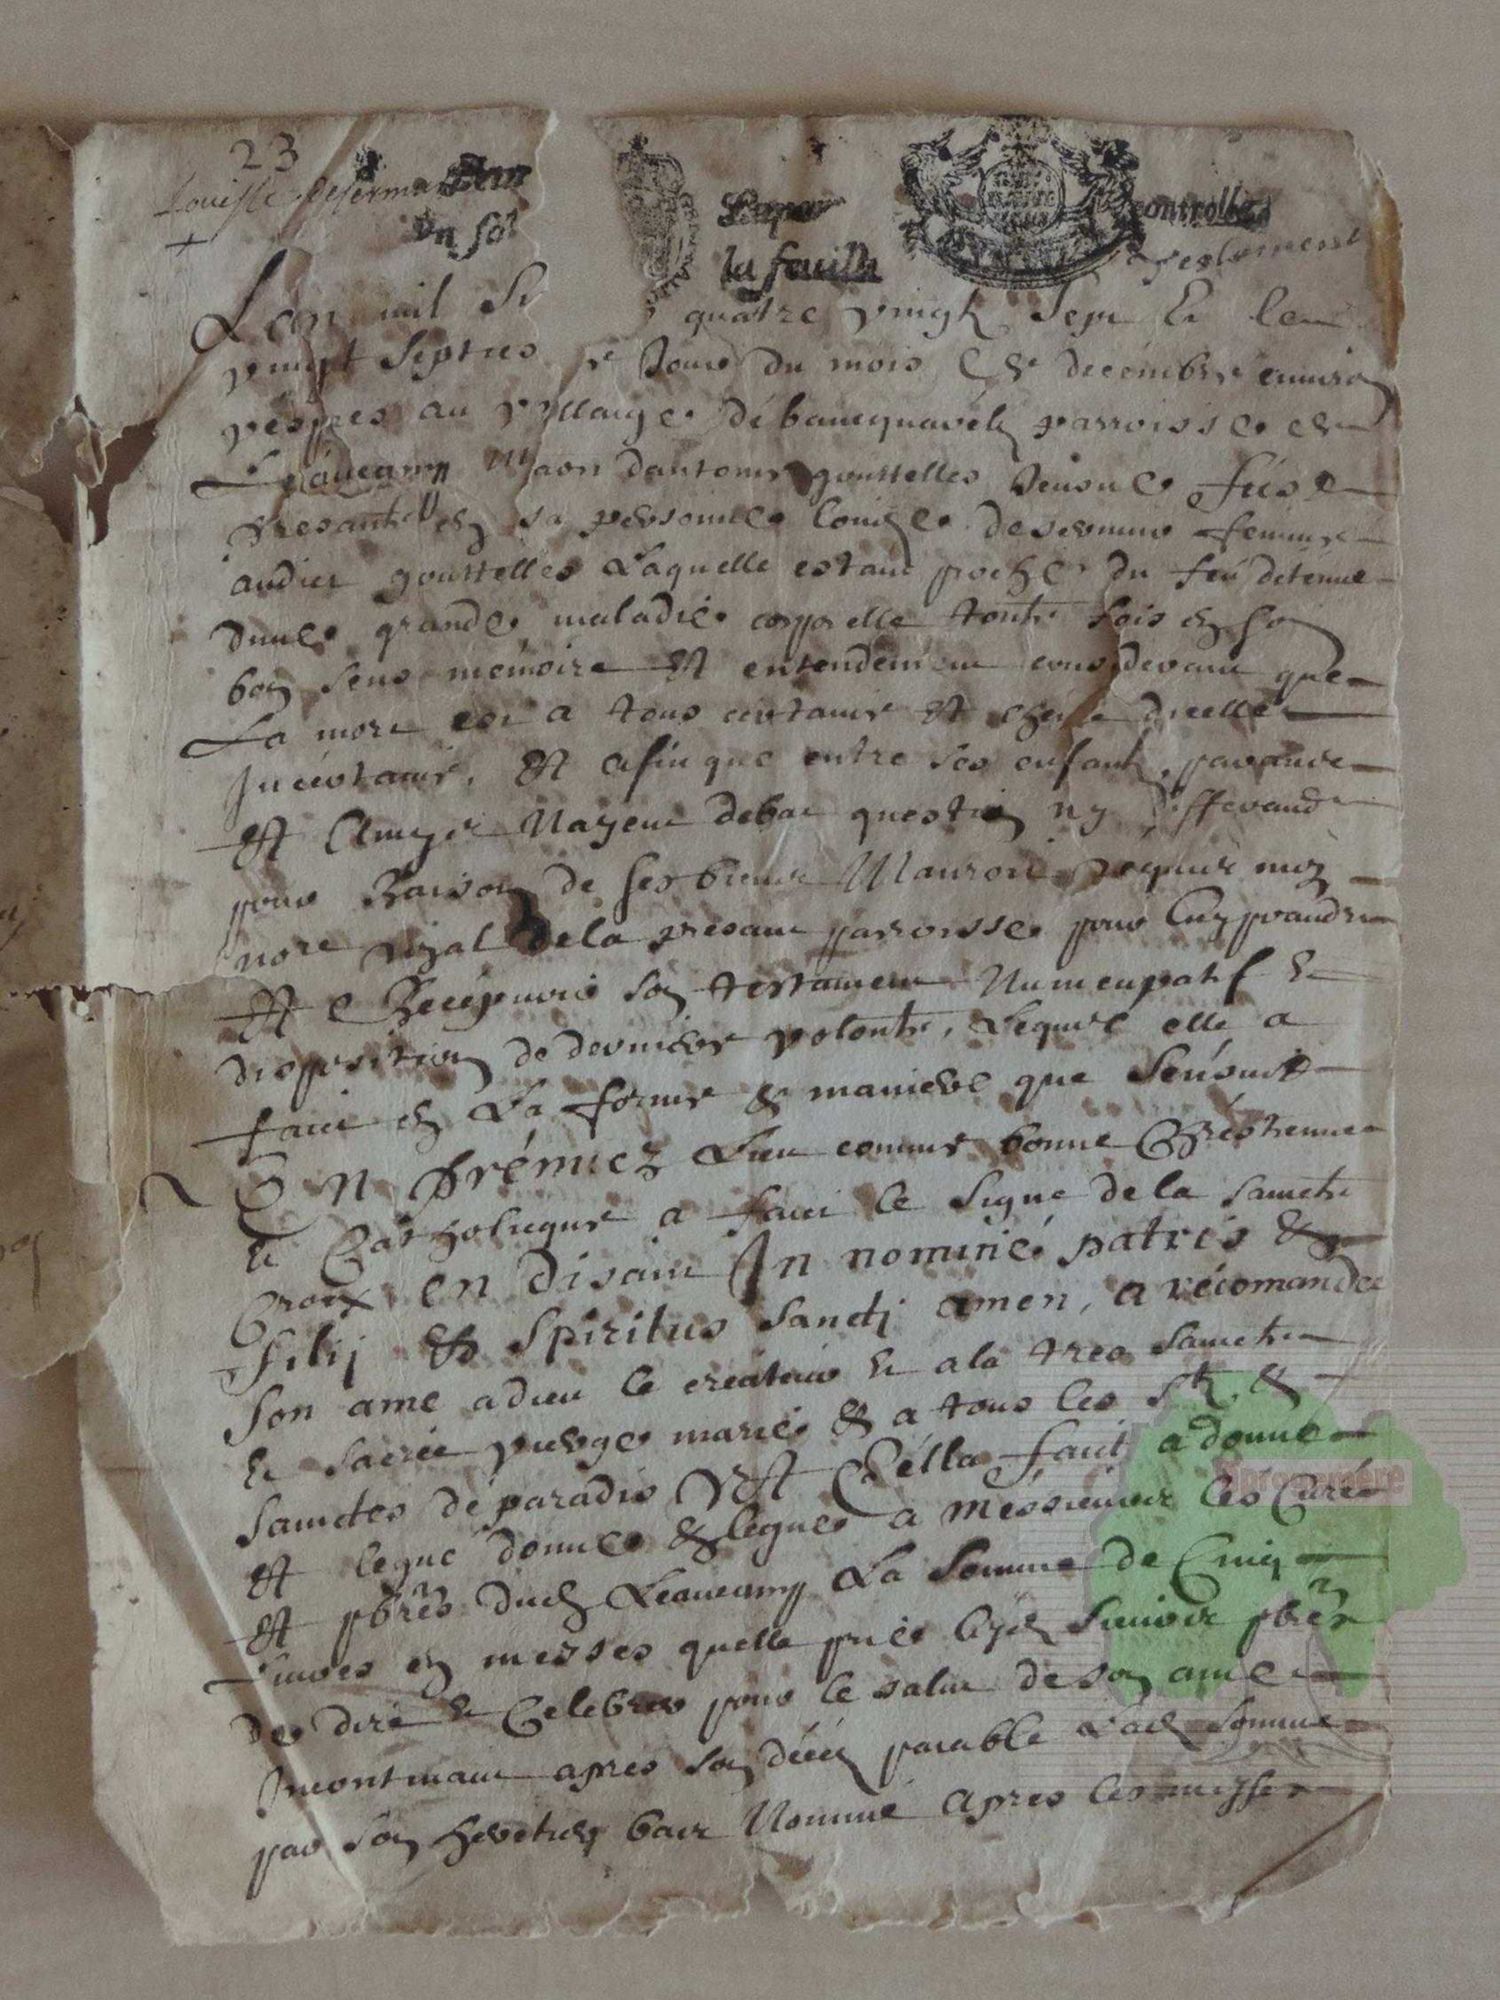 23
Louisse desermar
Un sol
la feuille
controlle
testement
Lan mil si quatre vingtz sept et le
vingt septies jour du mois de decembre environ
vespres au village de bancquavelz parroisse de
Leaucamp maon dantoine gourselles jeusne fuist
presante en sa personne louize desermar femme
audict gourselles laquelle estant proche du feu detenue
dune grande maladie corporelle toutes fois en so
bon sens memoire et entendement considerant que
La mort est a tous certaine et dicelle
Incertaine, et afin que entre ses enfantz, parantz
et Amyez Nayent debat question ny differandz
pour Raison de ses biens requis moy
nore royal de la presant parroisse pour
et Recepvoir son testament Numcupatif et
disposition de derniere volonte, Lequel elle a
faict en La forme et maniere que sensuit
En premiez Lieu comme bonne Chrestienne
et Catholicque a faict le signe de la saincte
Croix en disant In nominé patris et
filij et spiritus sancti amen, a récomandé
son ame a dieu le createur et a la tres saincte
et sacrée vierge marie et a tous les stz et
sainctes de paradis Et Célla faict a donné
et legué donne et legue a Méssieurs les Curé
et pbres dudt Leaucamp La somme de Cinq
Livres en messes quelle prie lesdt sieurs pbres
de dire et Celebrer pour le salut de son ame
Incontinant apres son décéz paiable Ladt somme
par son heretier bas Nommé apres les messes